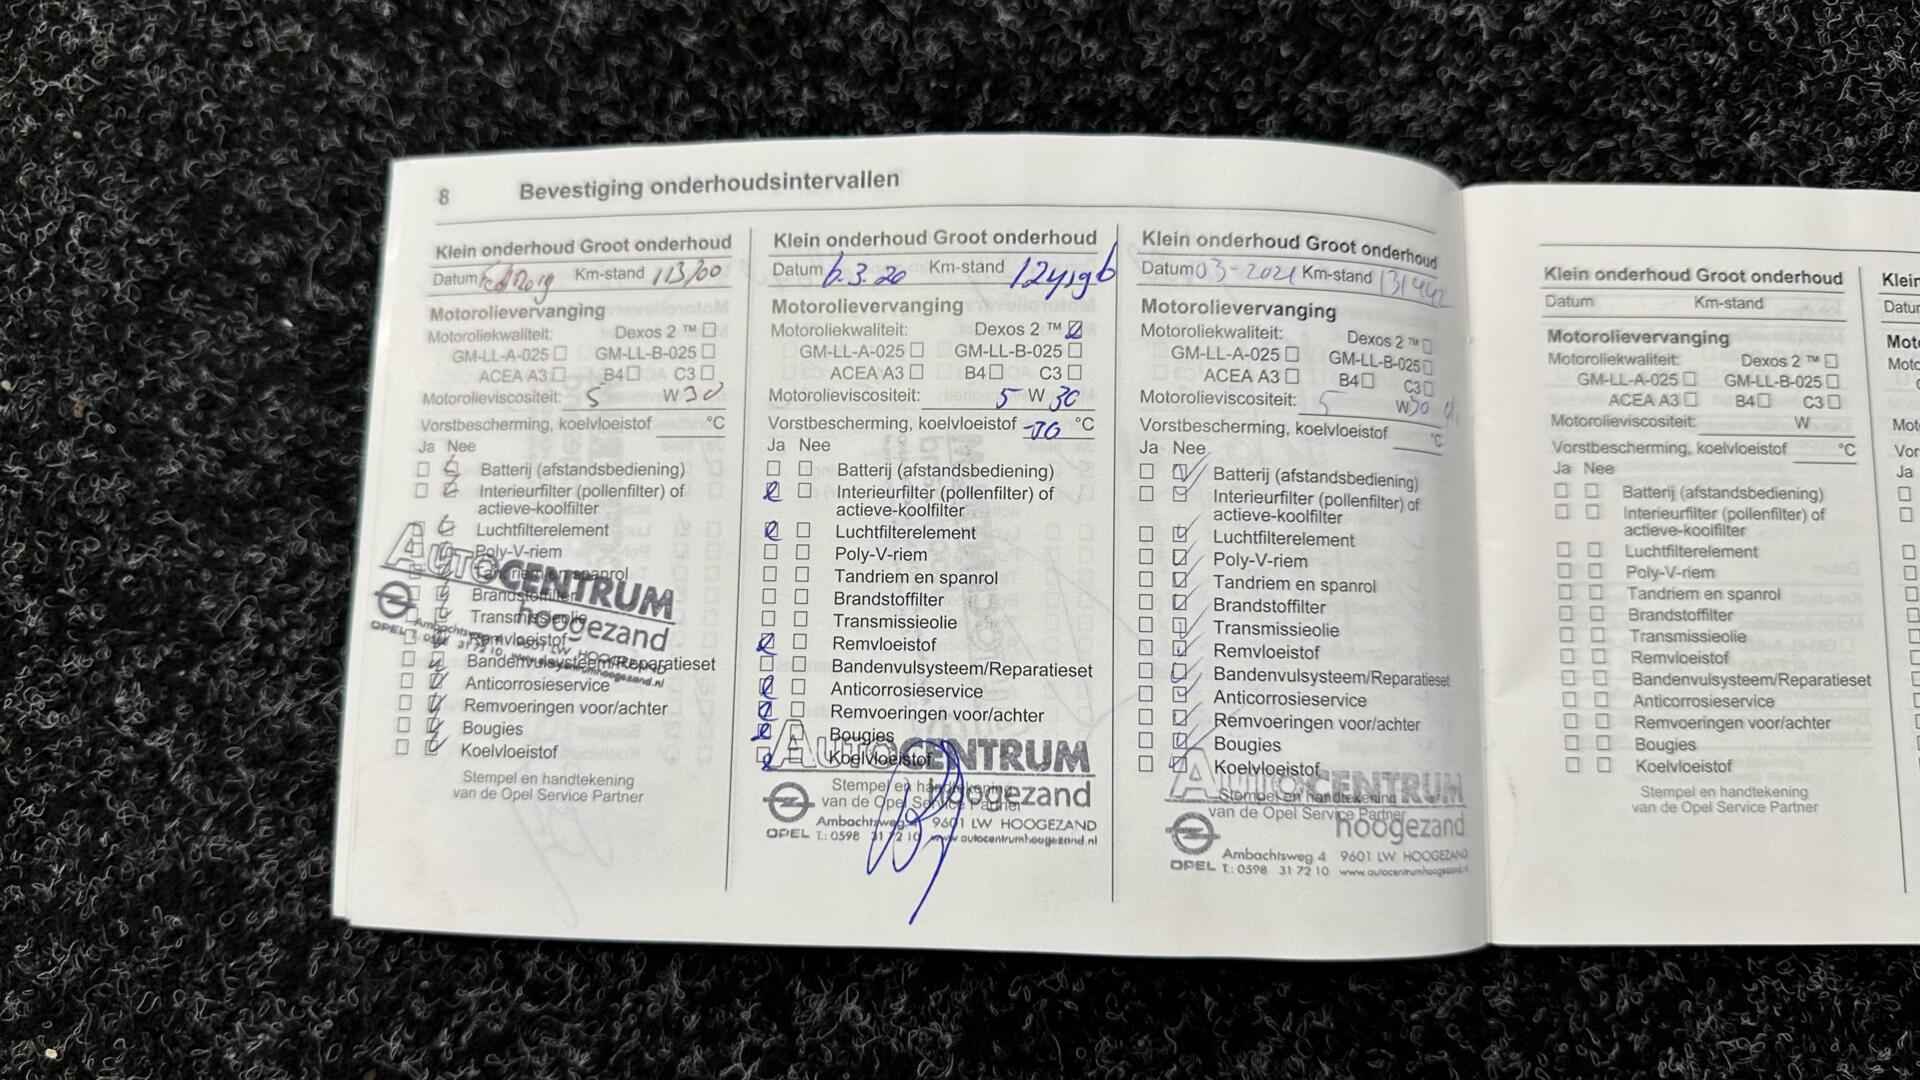 8 Bevestiging onderhoudsintervallen
Klein onderhoud Groot onderhoud
Datum Km-stand 113700
Motorolievervanging
Motoroliekwaliteit: Dexos 2 ™
GM-LL-A-025 GM-LL-B-025
ACEA A3 B4 C3
Motorolieviscositeit: 5 W 30
Vorstbescherming, koelvloeistof °C
Ja Nee
Batterij (afstandsbediening)
Interieurfilter (pollenfilter) of
actieve-koolfilter
Luchtfilterelement
Poly-V-riem
Tandriem en spanrol
Brandstoffilter
Transmissieolie
Remvloeistof
Bandenvulsysteem/Reparatieset
Anticorrosieservice
Remvoeringen voor/achter
Bougies
Koelvloeistof
Stempel en handtekening
van de Opel Service Partner
AUTOCENTRUM
hoogezand
OPEL
Klein onderhoud Groot onderhoud
Datum 6.3.20 Km-stand
Motorolievervanging
Motoroliekwaliteit: Dexos 2 ™
GM-LL-A-025 GM-LL-B-025
ACEA A3 B4 C3
Motorolieviscositeit: 5 W 30
Vorstbescherming, koelvloeistof °C
Ja Nee
Batterij (afstandsbediening)
Interieurfilter (pollenfilter) of
actieve-koolfilter
Luchtfilterelement
Poly-V-riem
Tandriem en spanrol
Brandstoffilter
Transmissieolie
Remvloeistof
Bandenvulsysteem/Reparatieset
Anticorrosieservice
Remvoeringen voor/achter
Bougies
Koelvloeistof
Stempel en handtekening
van de Opel Service Partner
AUTOCENTRUM
hoogezand
Ambachtsweg 4 9601 LW HOOGEZAND
OPEL T.: 0598 31 72 10 www.autocentrumhoogezand.nl
Klein onderhoud Groot onderhoud
Datum 03-2021 Km-stand 131442
Motorolievervanging
Motoroliekwaliteit: Dexos 2 ™
GM-LL-A-025 GM-LL-B-025
ACEA A3 B4 C3
Motorolieviscositeit: 5 W 30
Vorstbescherming, koelvloeistof °C
Ja Nee
Batterij (afstandsbediening)
Interieurfilter (pollenfilter) of
actieve-koolfilter
Luchtfilterelement
Poly-V-riem
Tandriem en spanrol
Brandstoffilter
Transmissieolie
Remvloeistof
Bandenvulsysteem/Reparatieset
Anticorrosieservice
Remvoeringen voor/achter
Bougies
Koelvloeistof
Stempel en handtekening
van de Opel Service Partner
AUTOCENTRUM
hoogezand
Ambachtsweg 4 9601 LW HOOGEZAND
OPEL T.: 0598 31 72 10 www.autocentrumhoogezand.nl
Klein onderhoud Groot onderhoud
Datum Km-stand
Motorolievervanging
Motoroliekwaliteit: Dexos 2 ™
GM-LL-A-025 GM-LL-B-025
ACEA A3 B4 C3
Motorolieviscositeit: W
Vorstbescherming, koelvloeistof °C
Ja Nee
Batterij (afstandsbediening)
Interieurfilter (pollenfilter) of
actieve-koolfilter
Luchtfilterelement
Poly-V-riem
Tandriem en spanrol
Brandstoffilter
Transmissieolie
Remvloeistof
Bandenvulsysteem/Reparatieset
Anticorrosieservice
Remvoeringen voor/achter
Bougies
Koelvloeistof
Stempel en handtekening
van de Opel Service Partner
Klein
Ja